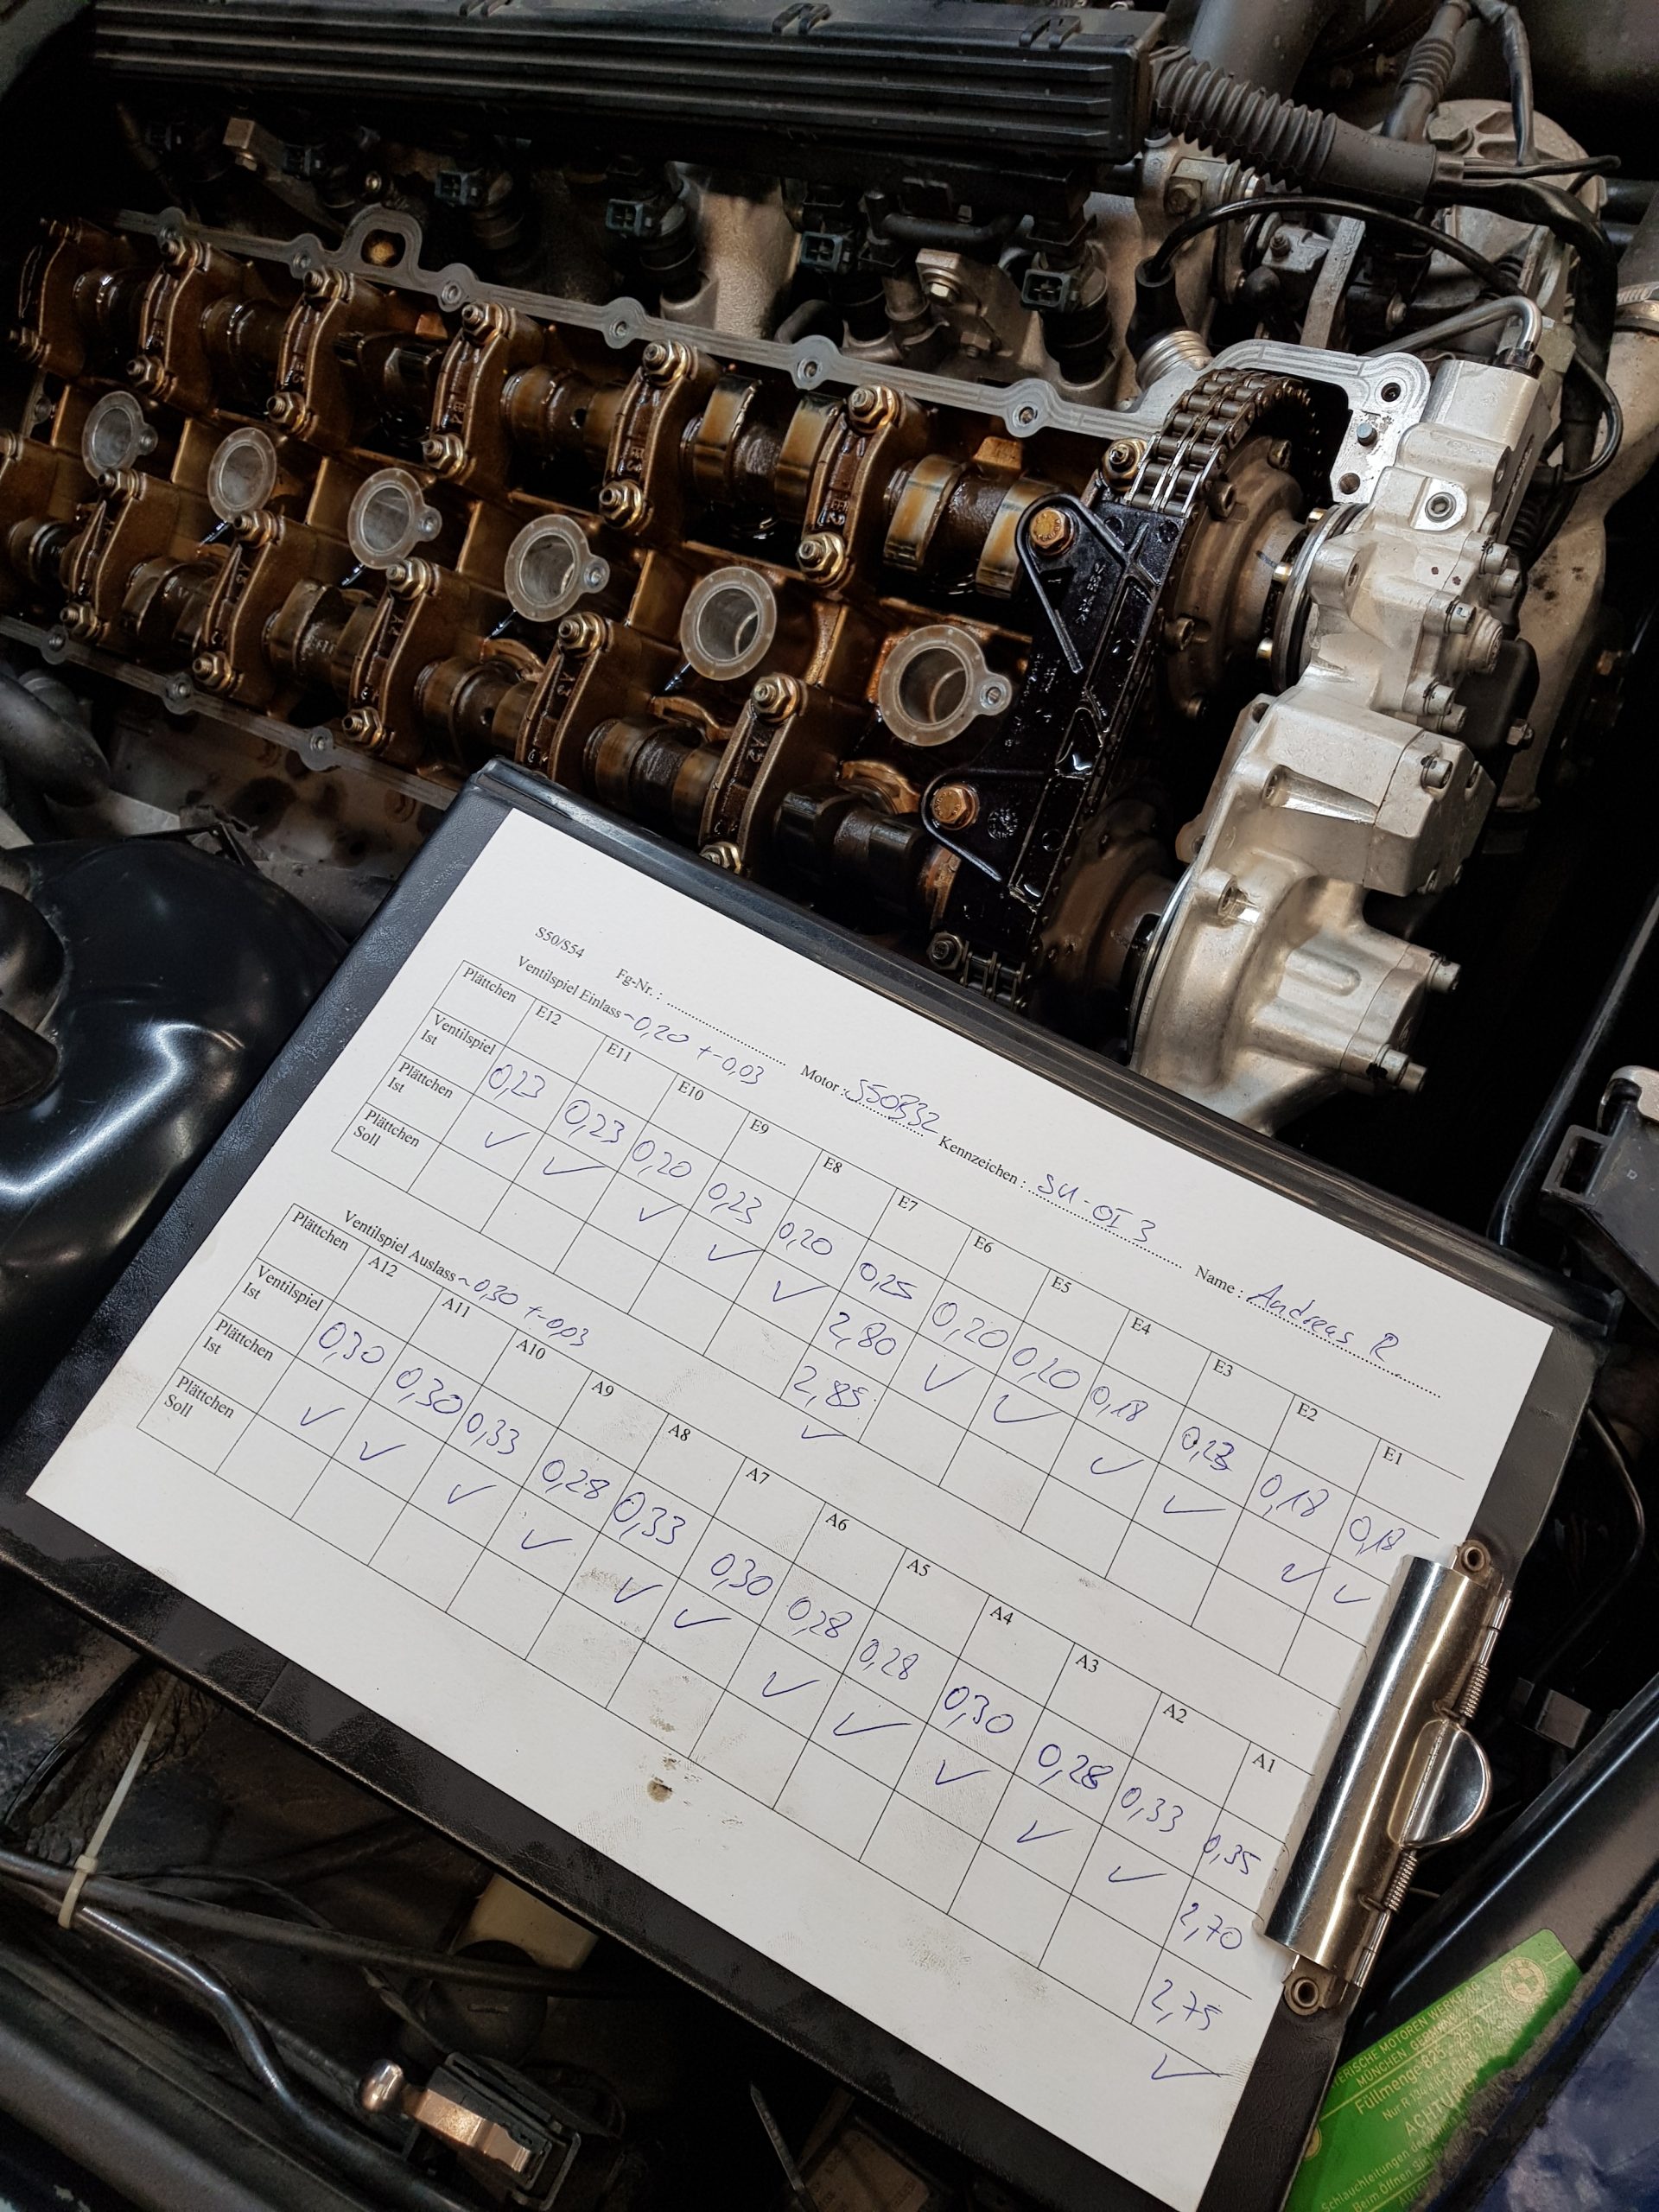 S50/S54
Fg-Nr. : Motor : S50B32 Kennzeichen : SU-OI 3 Name : Andreas R
Ventilspiel Einlass ~0,20 +-0,03
Plättchen E12 E11 E10 E9 E8 E7 E6 E5 E4 E3 E2 E1
Ventilspiel Ist 0,23 0,23 0,20 0,23 0,20 0,25 0,20 0,20 0,18 0,23 0,18 0,18
Plättchen Ist ✓ ✓ ✓ ✓ ✓ 2,80 ✓ ✓ ✓ ✓ ✓ ✓
Plättchen Soll 2,85 ✓
Ventilspiel Auslass ~0,30 +-0,03
Plättchen A12 A11 A10 A9 A8 A7 A6 A5 A4 A3 A2 A1
Ventilspiel Ist 0,30 0,30 0,33 0,28 0,33 0,30 0,28 0,28 0,30 0,28 0,33 0,35
Plättchen Ist ✓ ✓ ✓ ✓ ✓ ✓ ✓ ✓ ✓ ✓ ✓ 2,70
Plättchen Soll 2,75 ✓
BAYERISCHE MOTOREN WERKE
MÜNCHEN GERMANY
Füllmenge 825
Nur R 134a
ACHTUNG
Schlauchleitungen
Beim Öffnen